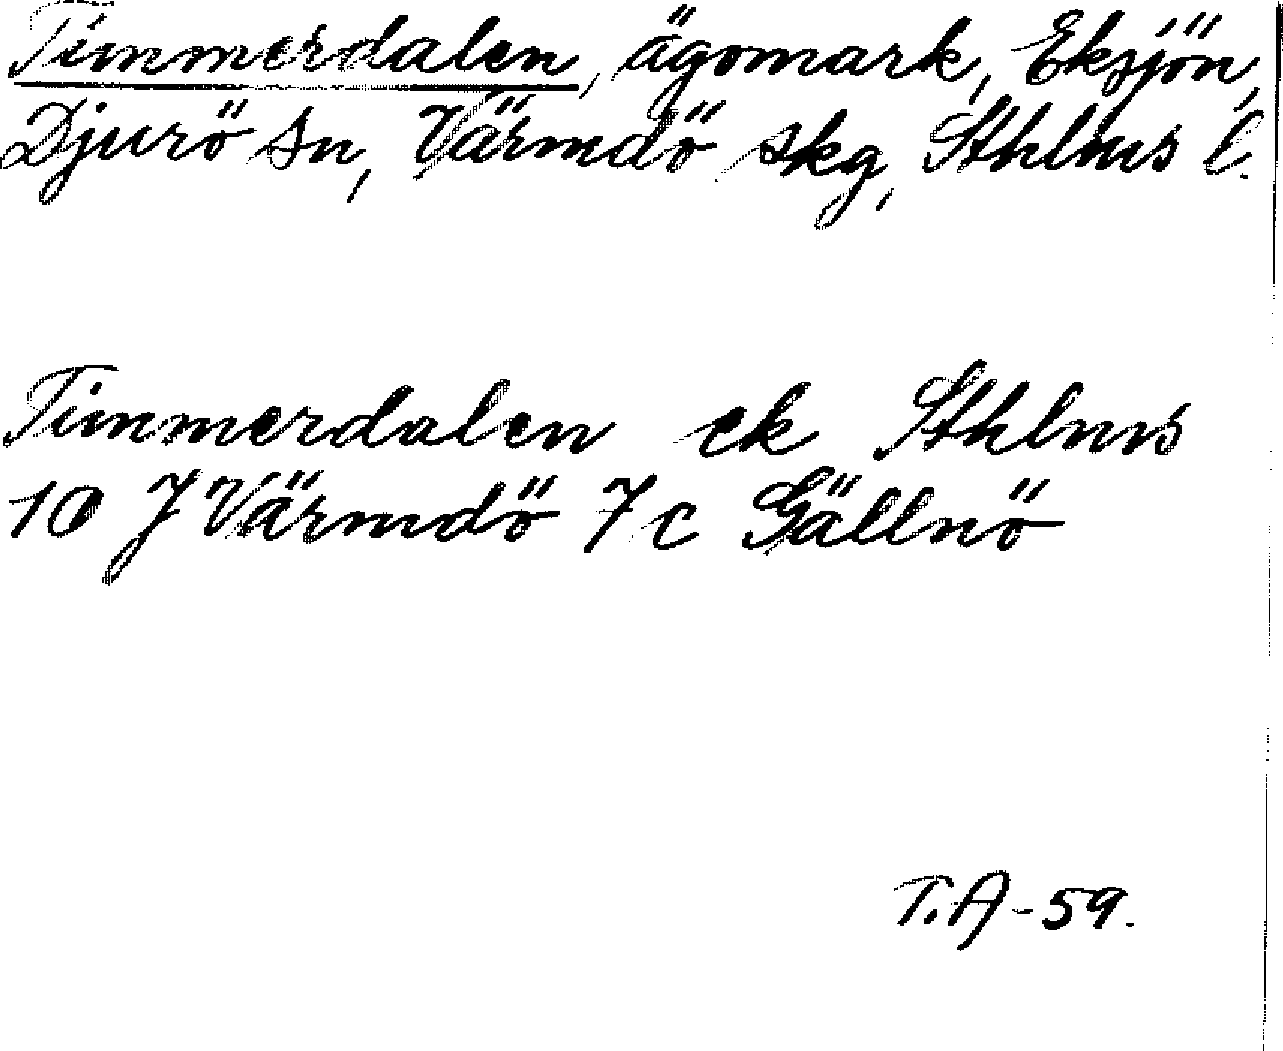 Timmerdalen, ägomark, Eksjön,
Djurö sn, Värmdö skg, Sthlms l.
Timmerdalen ek Sthlms
10 J Värmdö 7 c Gällnö
T.A-59.